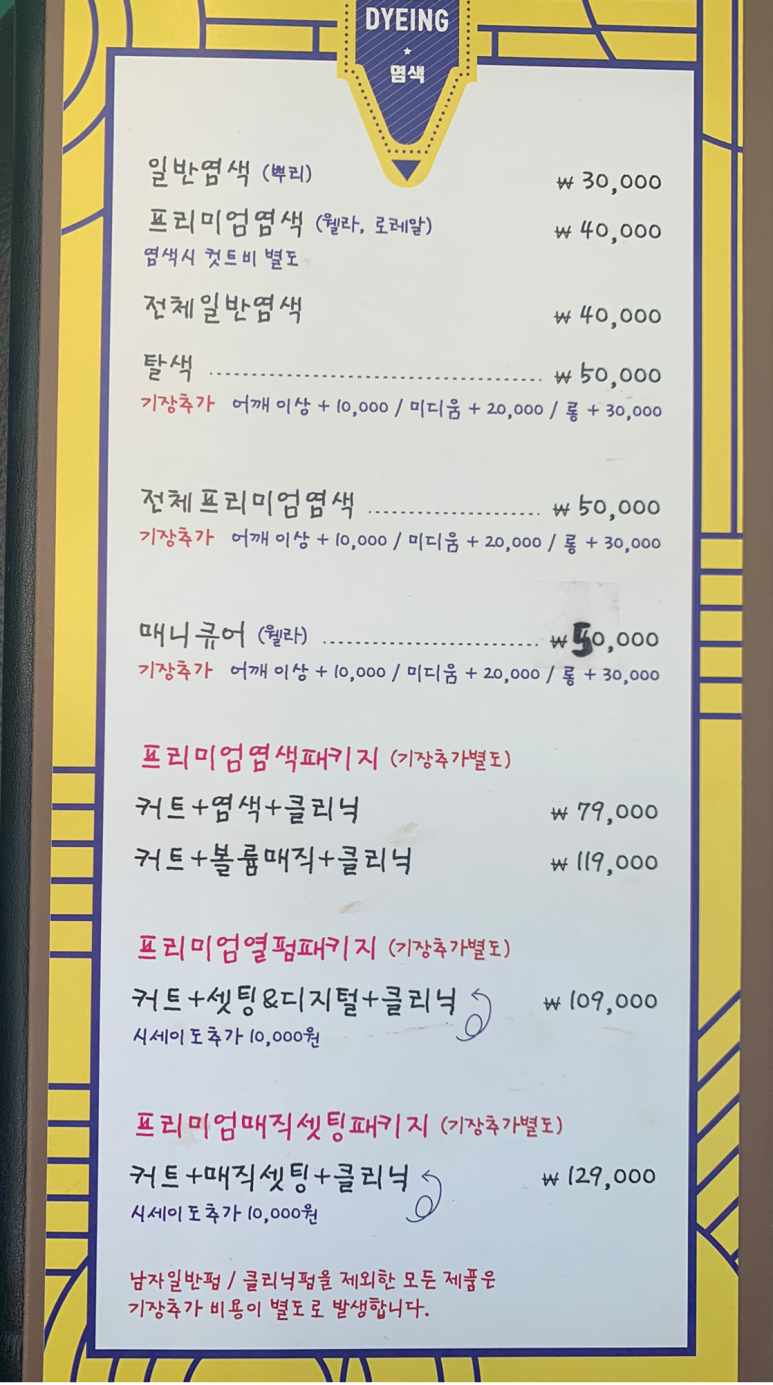 DYEING
염색
일반염색 (뿌리) ₩ 30,000
프리미엄염색 (웰라, 로레알) ₩ 40,000
염색시 컷트비 별도
전체일반염색 ₩ 40,000
탈색 ₩ 50,000
기장추가 어깨 이상 + 10,000 / 미디움 + 20,000 / 롱 + 30,000
전체프리미엄염색 ₩ 50,000
기장추가 어깨 이상 + 10,000 / 미디움 + 20,000 / 롱 + 30,000
매니큐어 (웰라) ₩ 50,000
기장추가 어깨 이상 + 10,000 / 미디움 + 20,000 / 롱 + 30,000
프리미엄염색패키지 (기장추가별도)
커트+염색+클리닉 ₩ 79,000
커트+볼륨매직+클리닉 ₩ 119,000
프리미엄열펌패키지 (기장추가별도)
커트+셋팅&디지털+클리닉 ₩ 109,000
시세이도추가 10,000원
프리미엄매직셋팅패키지 (기장추가별도)
커트+매직셋팅+클리닉 ₩ 129,000
시세이도추가 10,000원
남자일반펌 / 클리닉펌을 제외한 모든 제품은
기장추가 비용이 별도로 발생합니다.